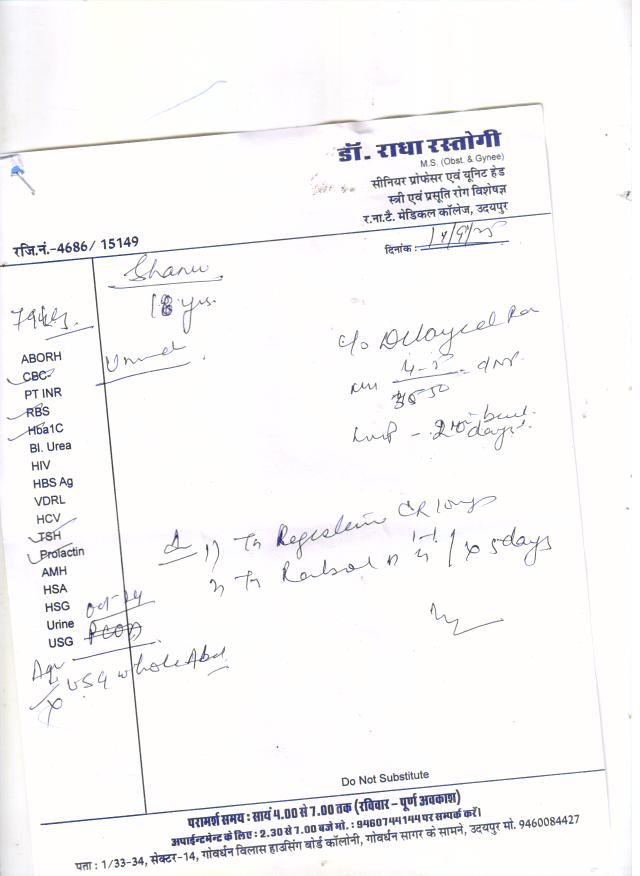 डॉ. राधा रस्तोगी
M.S. (Obst. & Gynee)
सीनियर प्रोफेसर एवं यूनिट हेड
स्त्री एवं प्रसूति रोग विशेषज्ञ
र.ना.टै. मेडिकल कॉलेज, उदयपुर
रजि.नं.-4686/ 15149
दिनांक :
Shanu
18 yrs.
c/o Delayed
LMP - days
ABORH
CBC
PT INR
RBS
Hba1C
Bl. Urea
HIV
HBS Ag
VDRL
HCV
TSH
Prolactin
AMH
HSA
HSG
Urine
USG PCOD
USG whole Abd
1) Tn CR 10mg
Tn 1 x 5days
Do Not Substitute
परामर्श समय : सायं 4.00 से 7.00 तक (रविवार – पूर्ण अवकाश)
अपाईन्टमेन्ट के लिए : 2.30 से 7.00 बजे मो. : 9460744144 पर सम्पर्क करें।
पता : 1/33-34, सेक्टर-14, गोवर्धन विलास हाउसिंग बोर्ड कॉलोनी, गोवर्धन सागर के सामने, उदयपुर मो. 9460084427